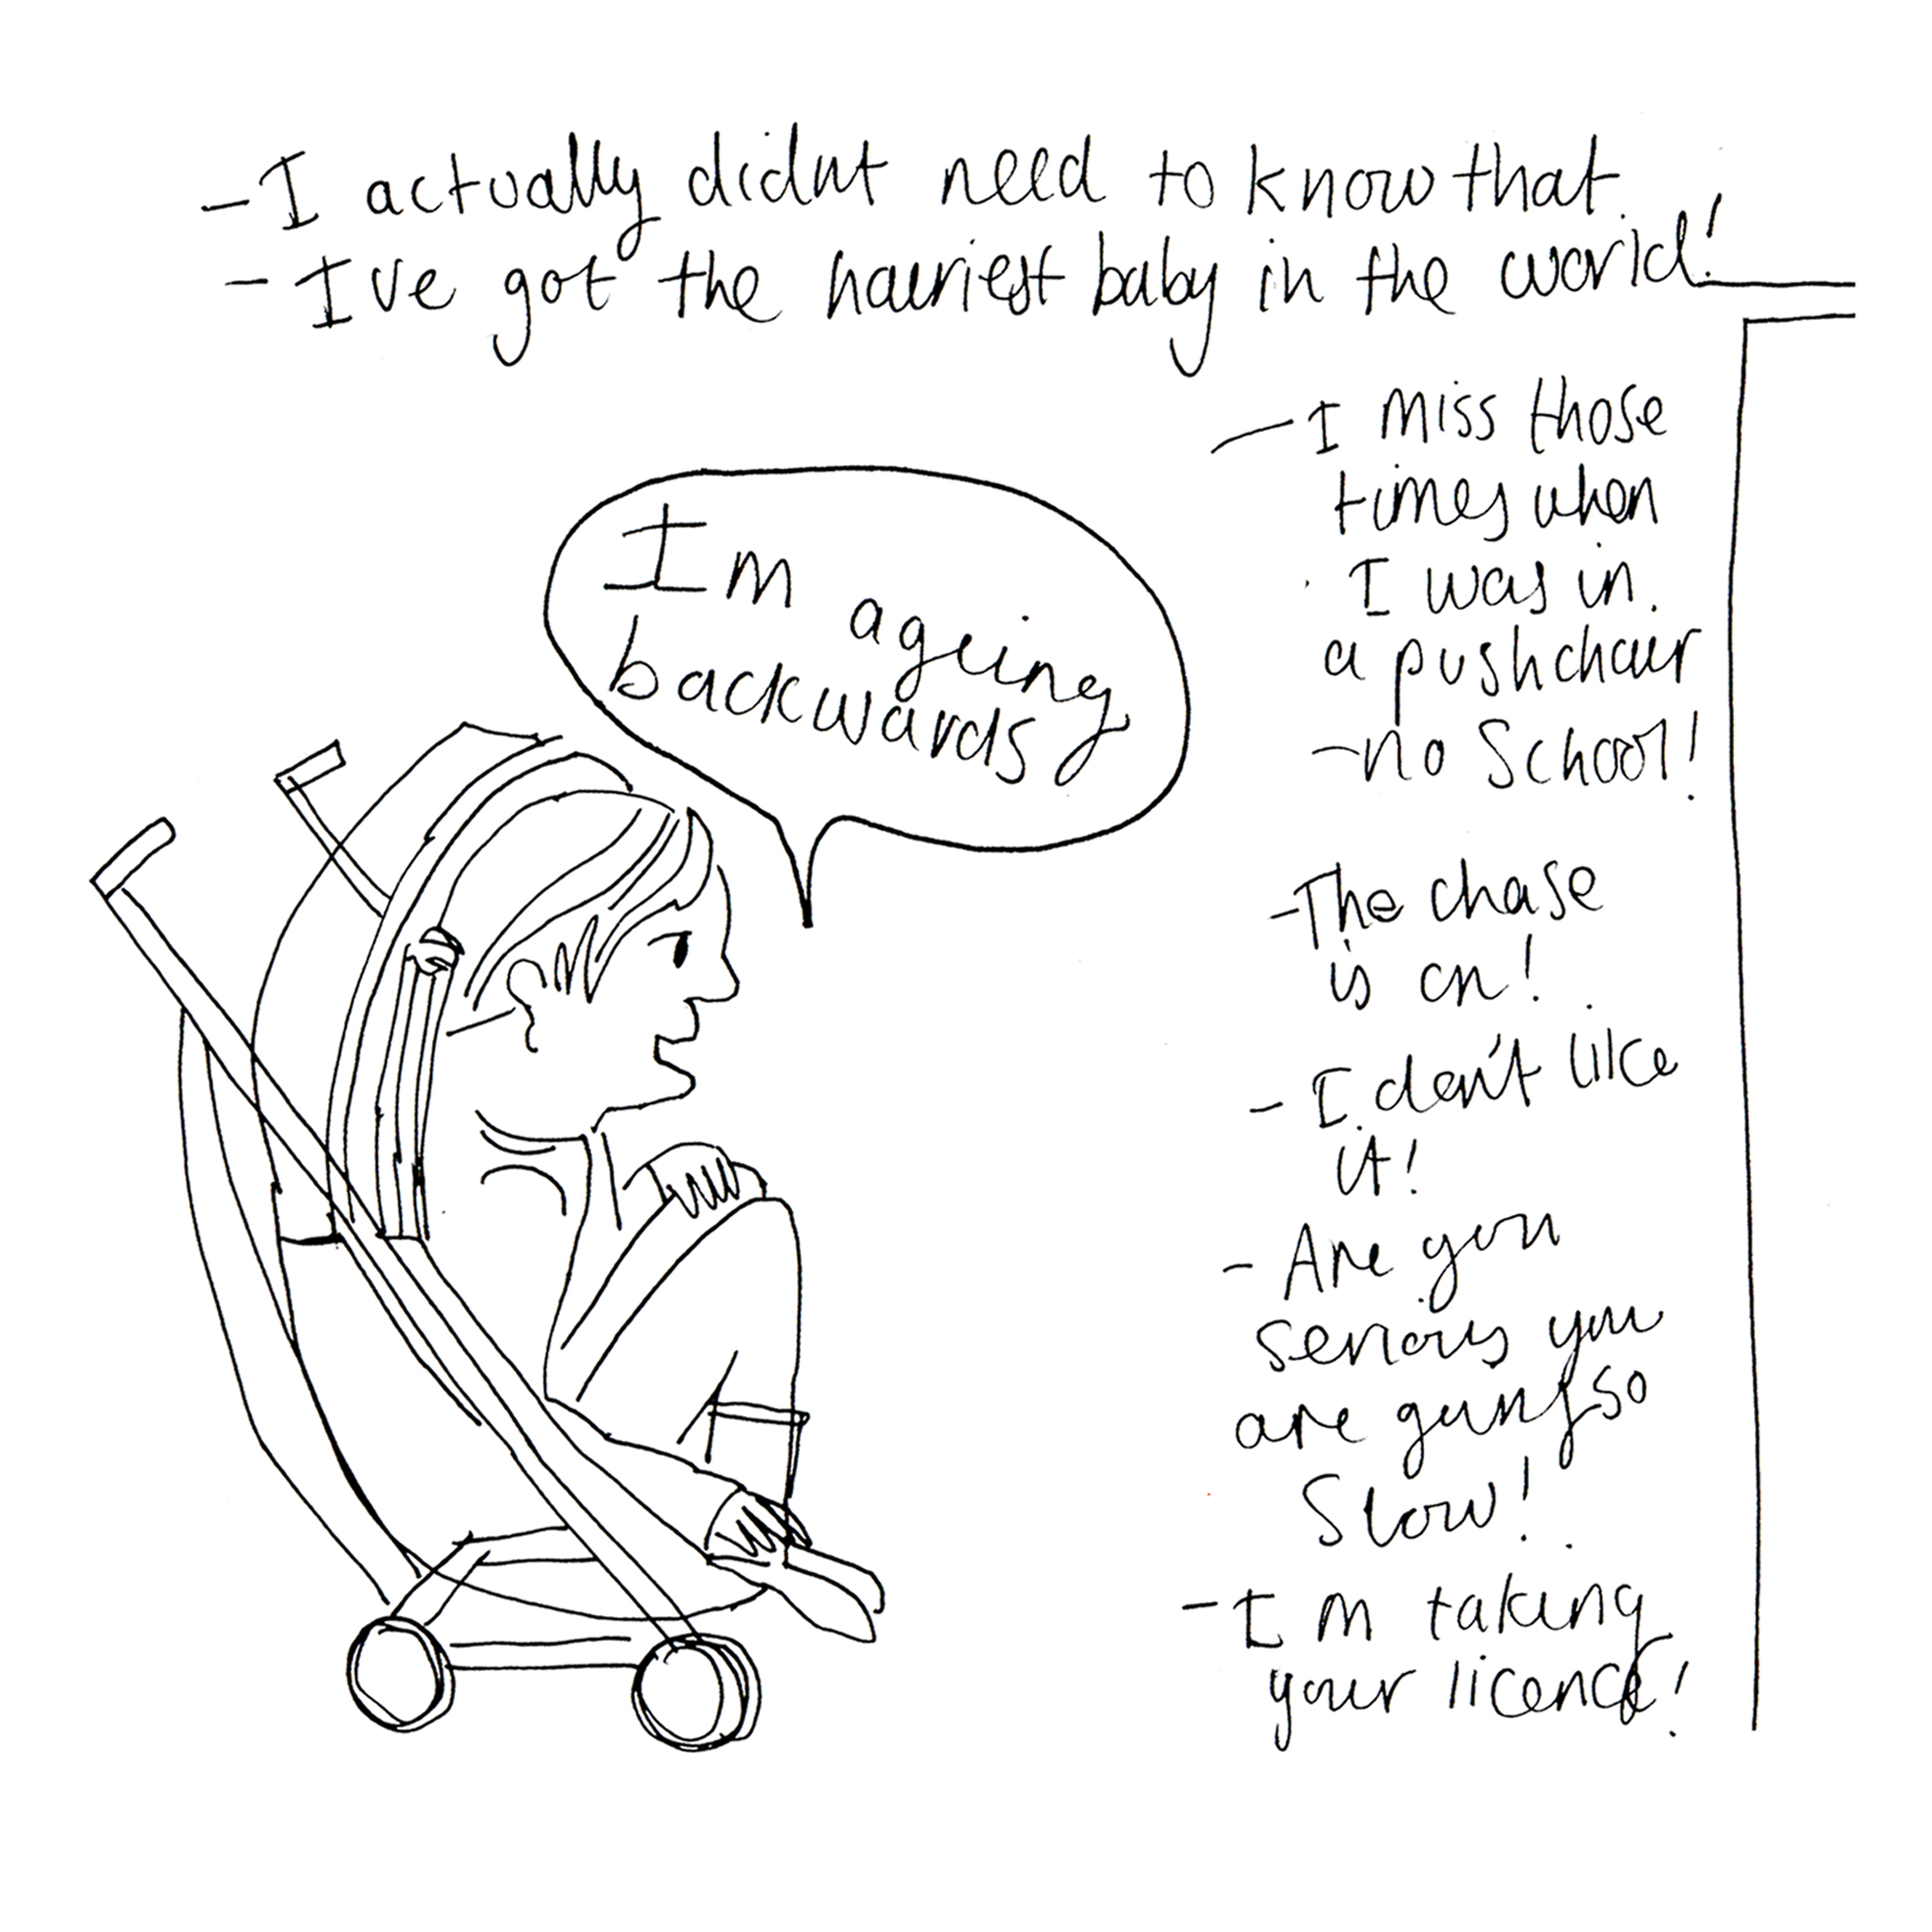 - I actually didnt need to know that.
- Ive got the hairiest baby in the world!
Im ageing
backwards
- I miss those
times when
I was in
a pushchair
- no School!
- The chase
is on!
- I don't like
it!
- Are you
serious you
are going so
Slow!
- Im taking
your licence!